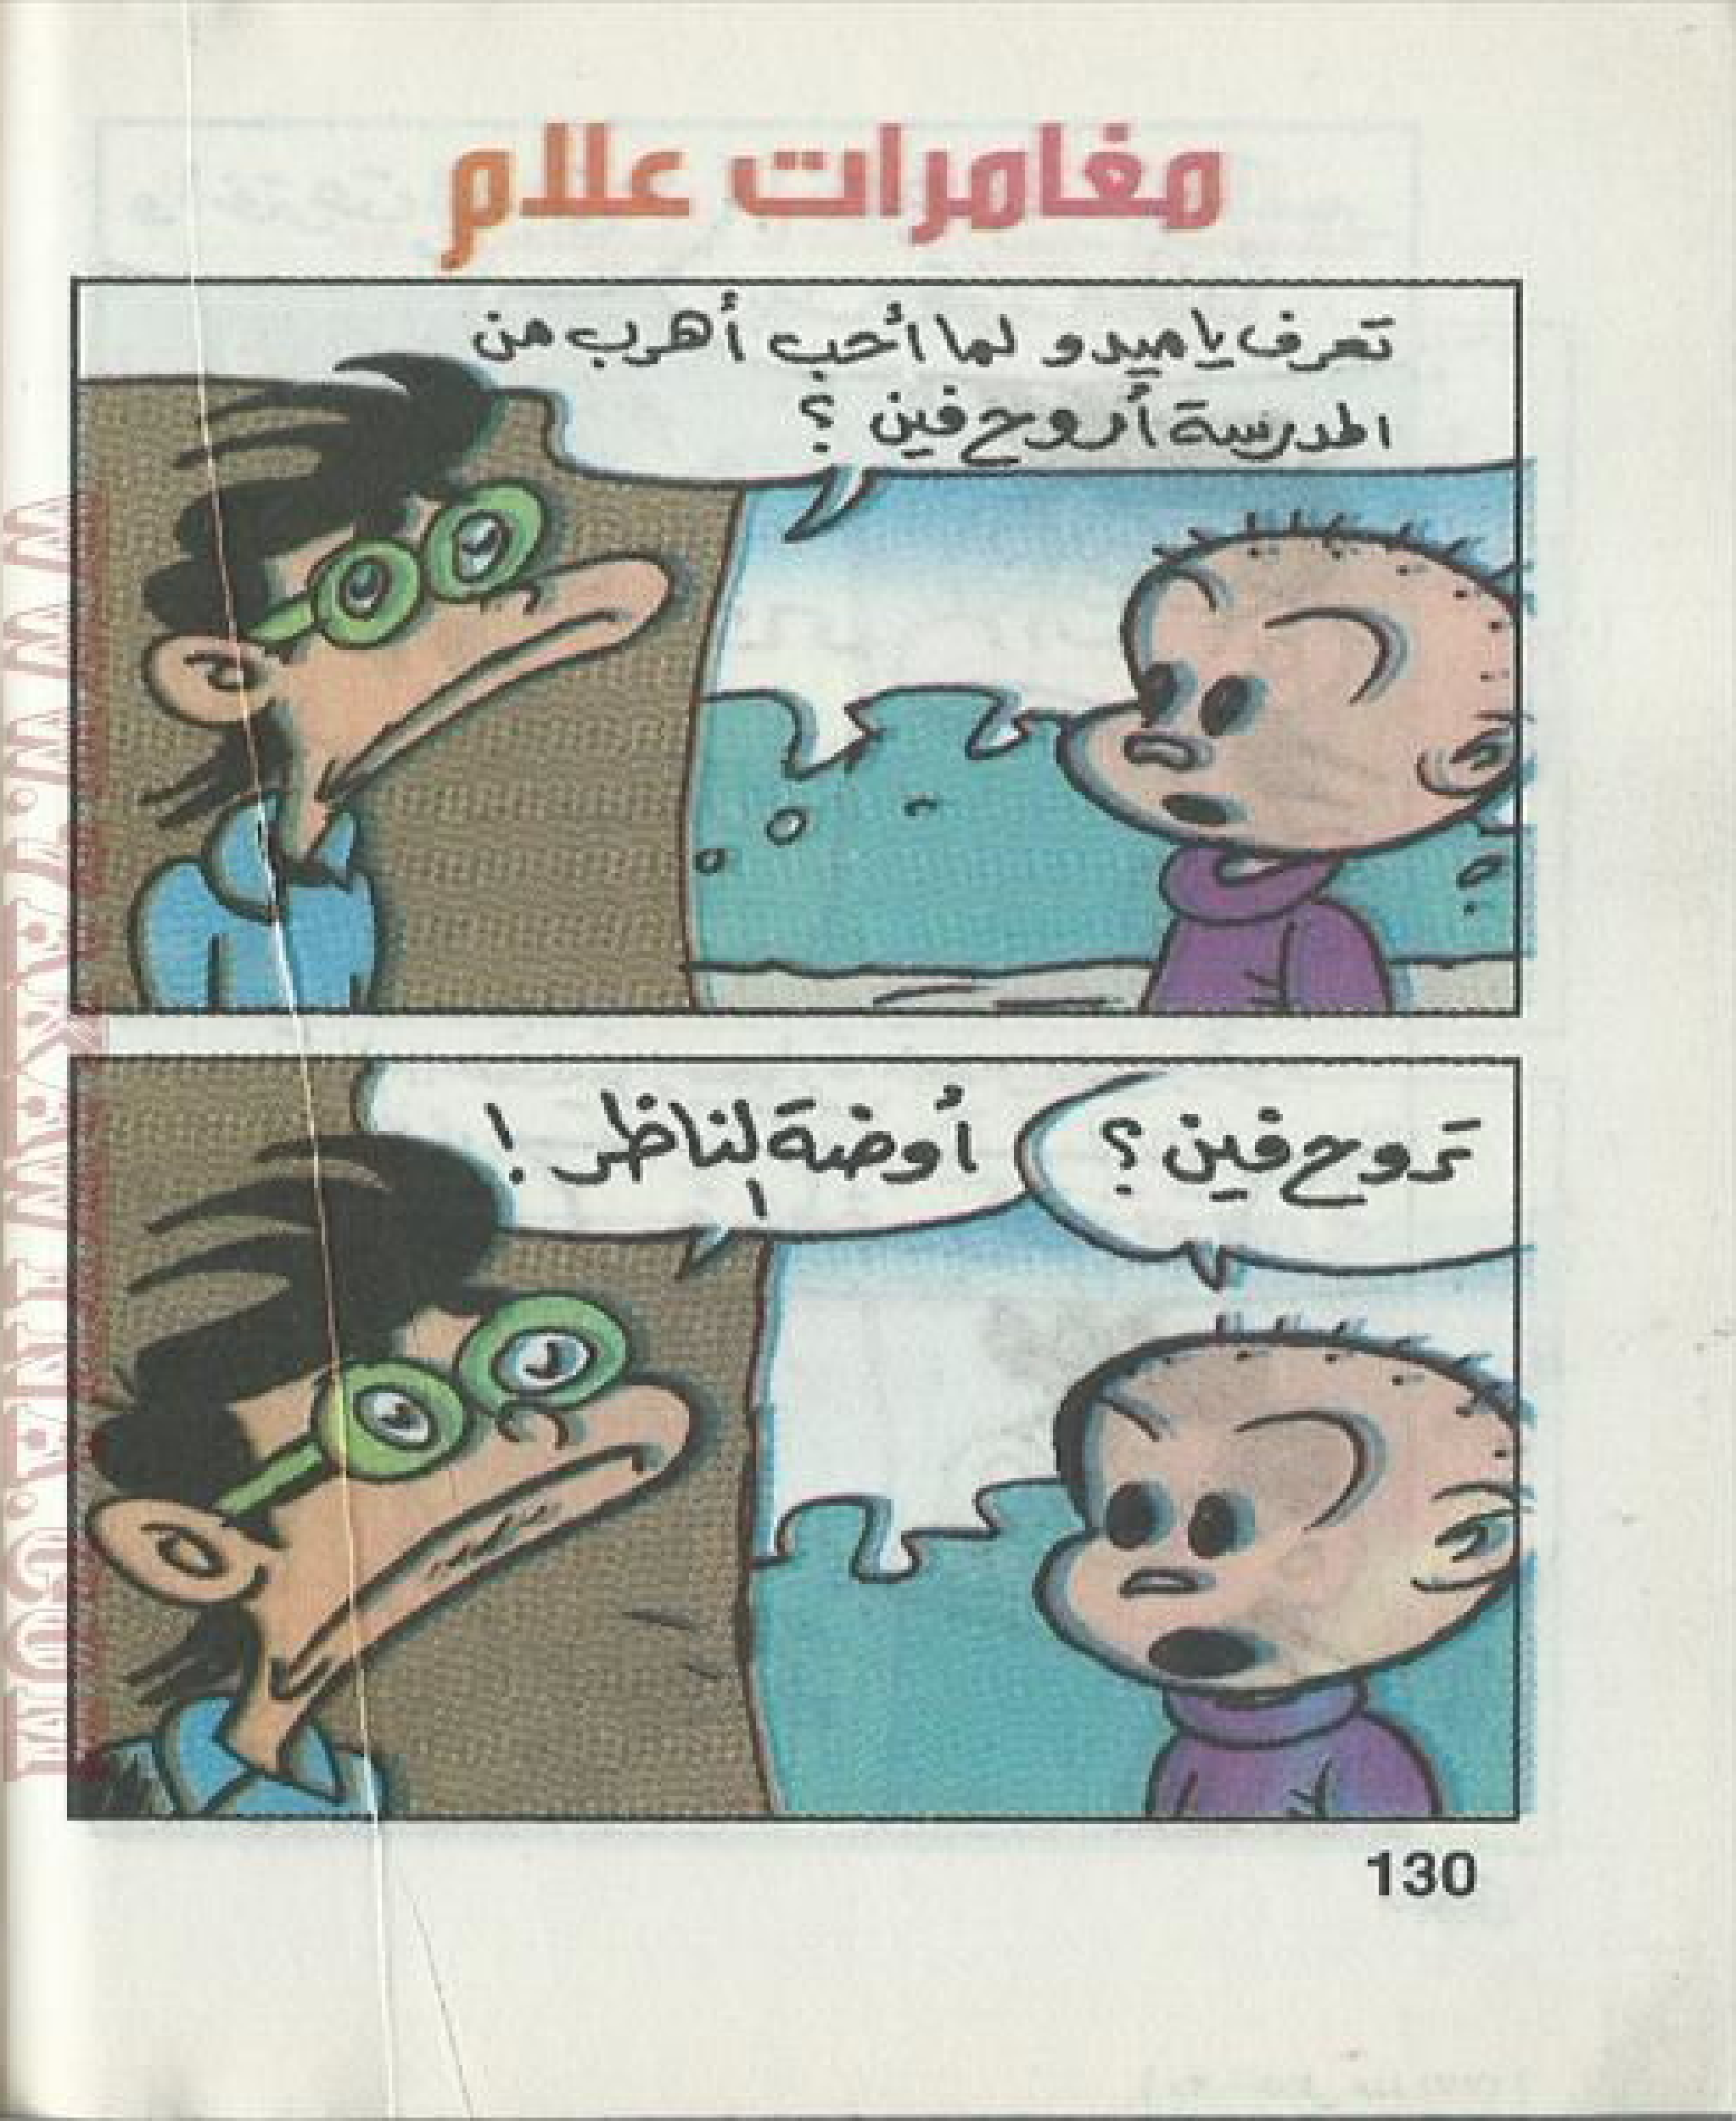 مغامرات علام
تعرف يا ميدو لما أحب أهرب من
المدرسة أروح فين ؟
تروح فين ؟
أوضة الناظر !
130